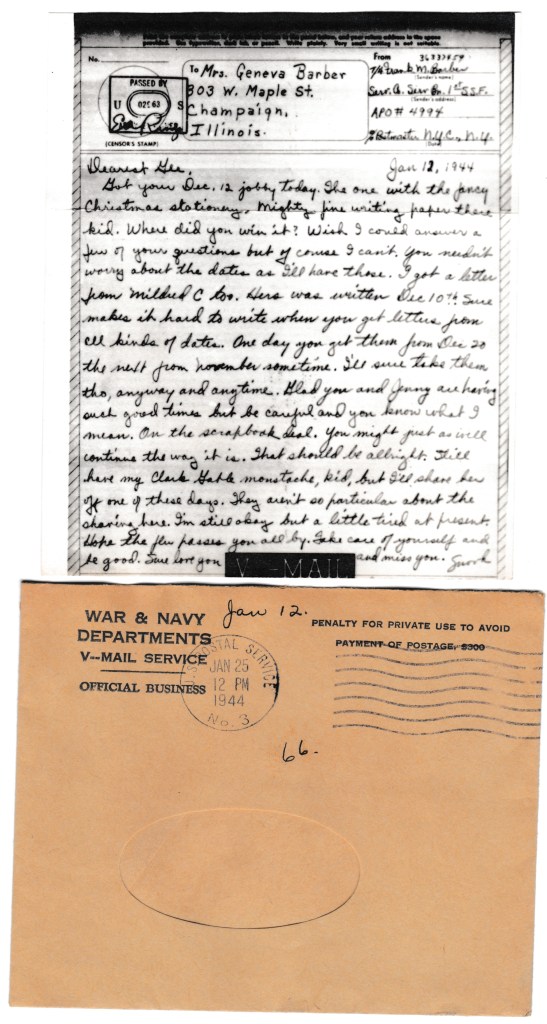 provided. Use typewriter, dark ink, or pencil. Write plainly. Very small writing is not suitable.
No.
PASSED BY
U S
(CENSOR'S STAMP)
To Mrs. Geneva Barber
803 W. Maple St.
Champaign,
Illinois.
From
T/4 Frank M. Barber
(Sender's name)
Serv. Co. Serv. Bn. 1st S.S.F.
(Sender's address)
APO # 4994
% Postmaster N.Y.C., N.Y.
(Date)
Dearest Gee, Jan 12, 1944
Got your Dec. 12 jobby today. The one with the fancy
Christmas stationery. Mighty fine writing paper there
kid. Where did you win it? Wish I could answer a
few of your questions but of course I can't. You needn't
worry about the dates as I'll have those. I got a letter
from Mildred C too. Hers was written Dec 10th. Sure
makes it hard to write when you get letters from
all kinds of dates. One day you get them from Dec 20
the next from November sometime. I'll sure take them
tho, anyway and anytime. Glad you and Jenny are having
such good times but be careful and you know what I
mean. On the scrapbook deal. You might just as well
continue the way it is. That should be allright. Still
have my Clark Gable moustache, kid, but I'll shave her
off one of these days. They aren't so particular about the
shaving here. I'm still okay but a little tired at present.
Hope the flu passes you all by. Take care of yourself and
be good. Sure love you and miss you. Snook
V-MAIL
WAR & NAVY
DEPARTMENTS
V--MAIL SERVICE
OFFICIAL BUSINESS
Jan 12.
PENALTY FOR PRIVATE USE TO AVOID
PAYMENT OF POSTAGE, $300
U.S. POSTAL SERVICE
JAN 25
12 PM
1944
No. 3
66.